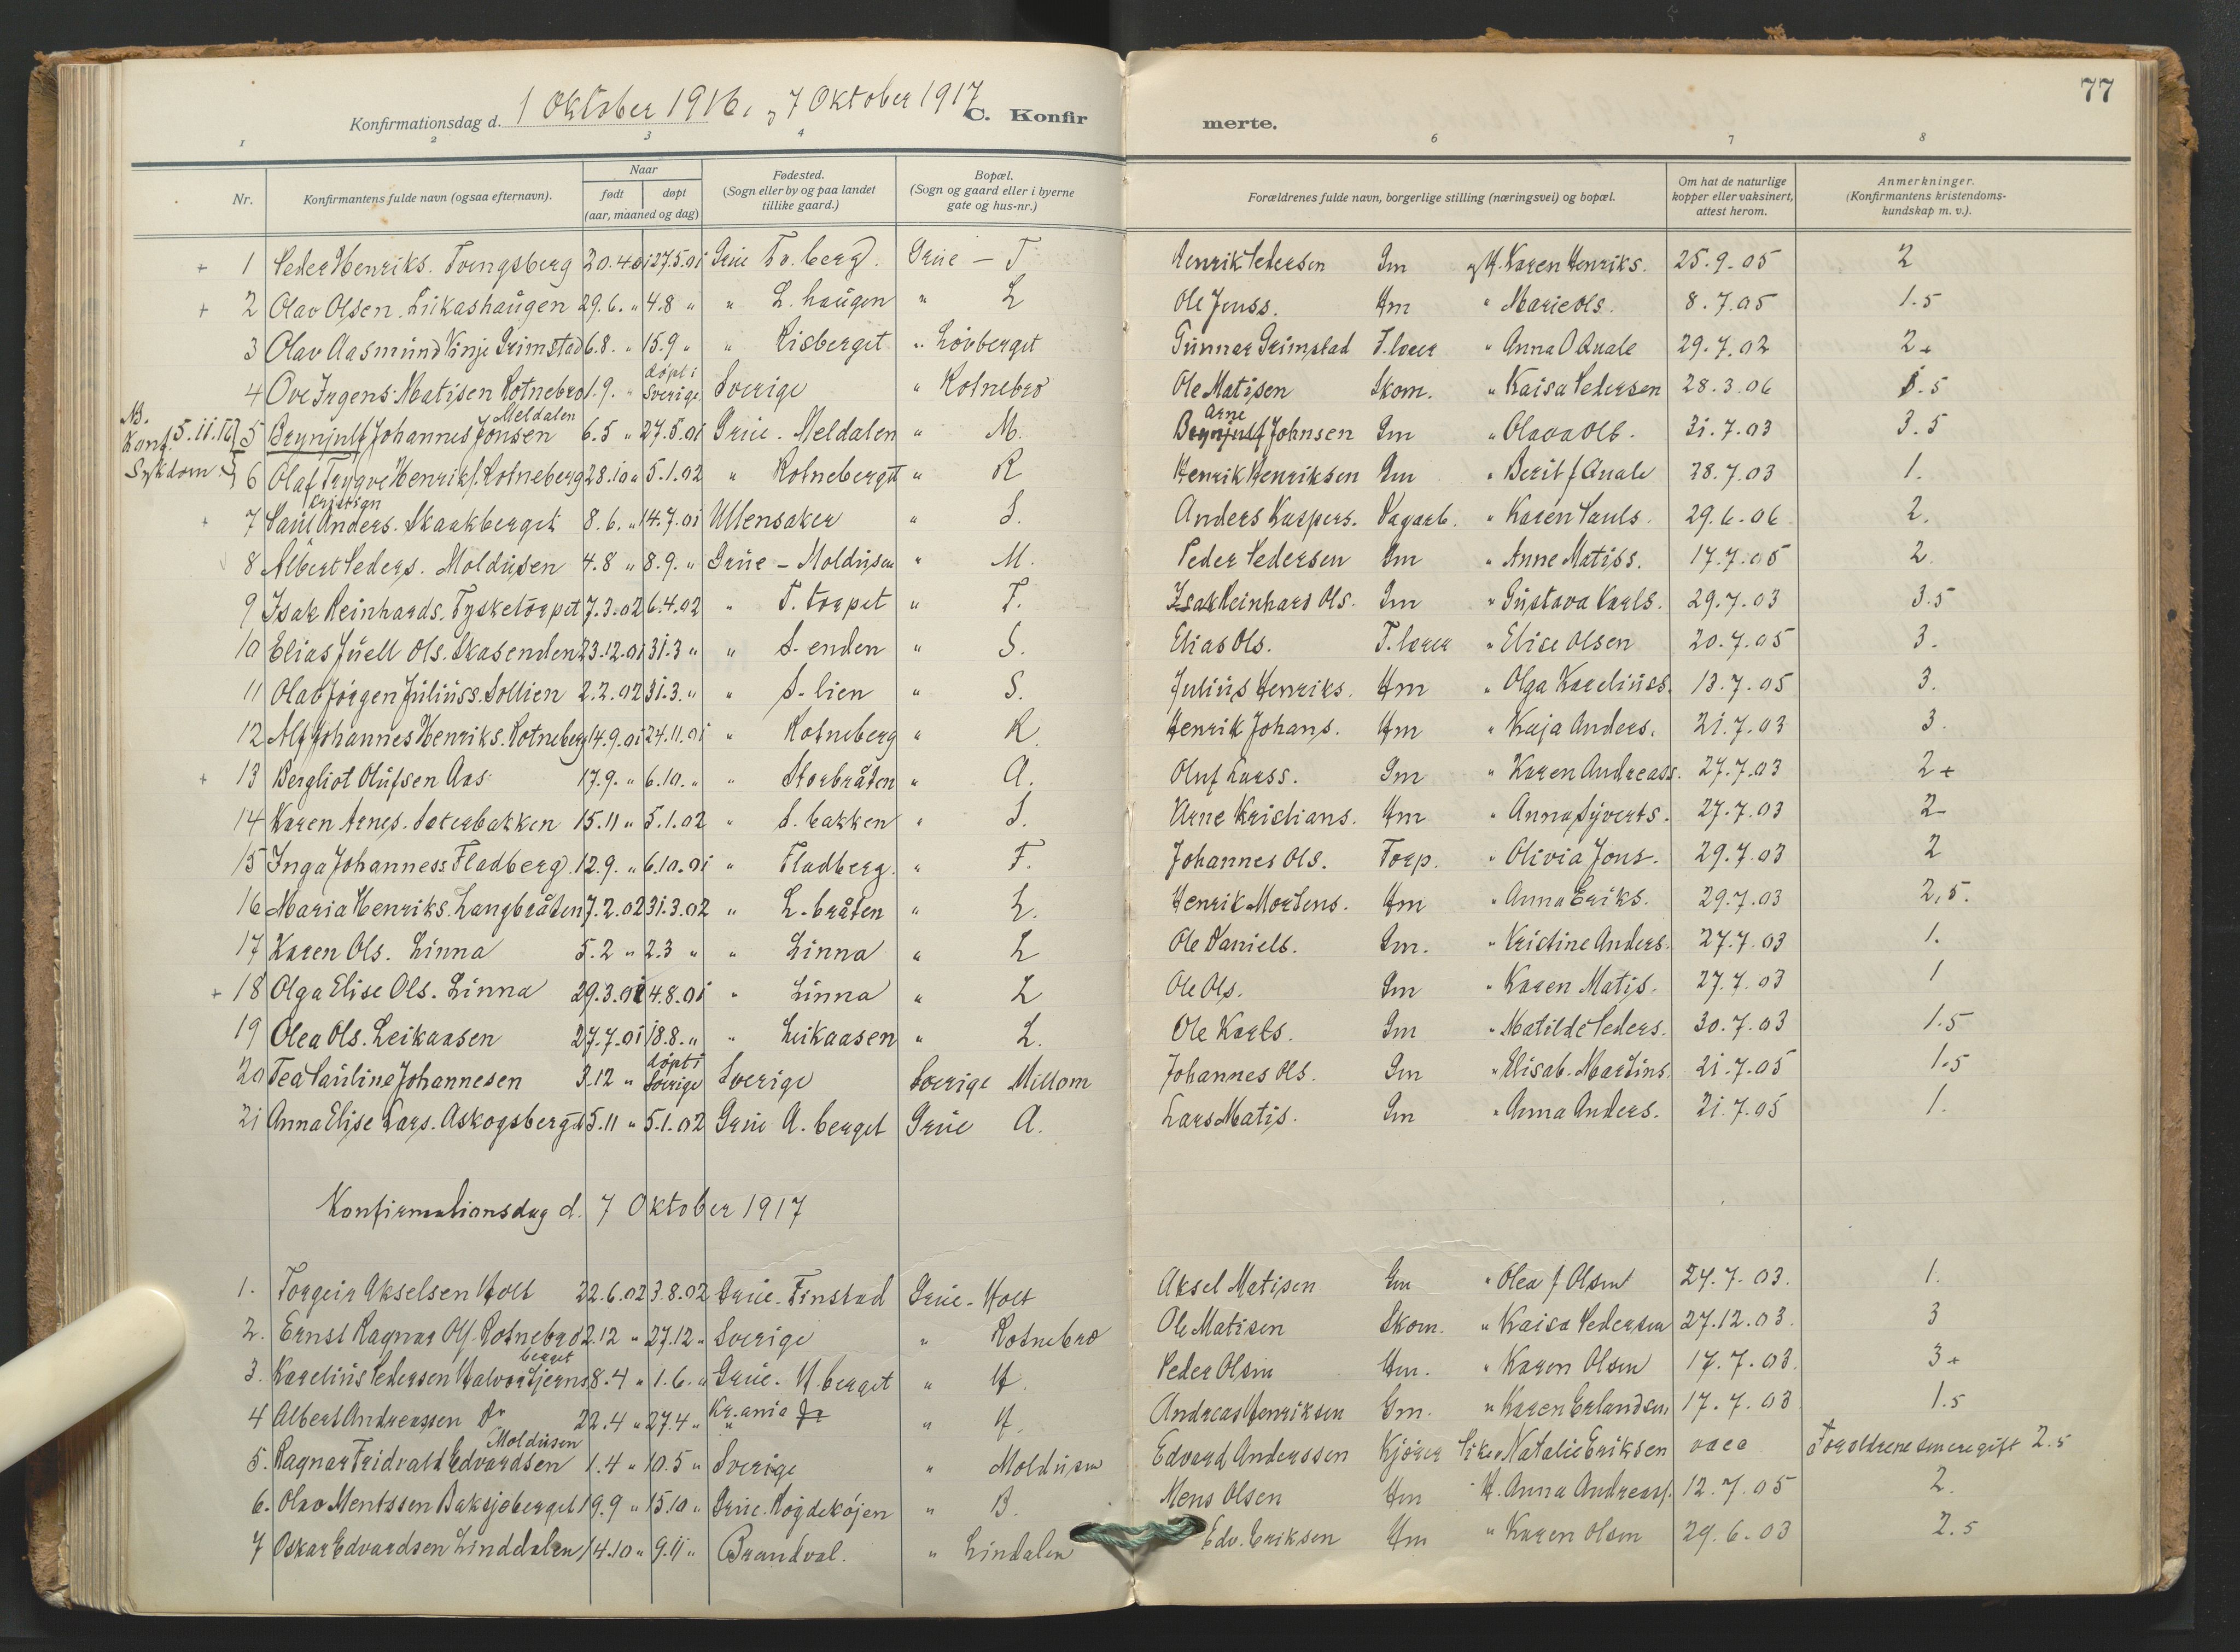 77
Konfirmationsdag d. 1 Oktober 1916. og 7 Oktober 1917 C. Konfirmerte.
1 2 3 4 6 7 8
Nr. Konfirmantens fulde navn (ogsaa efternavn). Naar født døpt (aar, maaned og dag) Fødested. (Sogn eller by og paa landet tillike gaard.) Bopæl. (Sogn og gaard eller i byerne gate og hus-nr.) Forældrenes fulde navn, borgerlige stilling (næringsvei) og bopæl. Om hat de naturlige kopper eller vaksinert, attest herom. Anmerkninger. (Konfirmantens kristendomskundskap m. v.).
+ 1 Peder Henriks. Tvengsberg 20.4.01 27.5.01 Grue Tv. berg. Grue - T. Henrik Pedersen Gm og H. Karen Henriks. 25.9.05 2
+ 2 Olav Olsen. Lukashaugen 29.6. " 4.8 " " L. haugen " L Ole Jenss. Hm " Marie Ols. 8.7.05 1.5
3 Olav Aasmund Vinje Grimstad 6.8. " 15.9 " " Risberget " Løvberget Gunnar Grimstad F. lærer " Anna O Quale 29.7.02 2+
4 Ove Irgens Matisen Rotnebro 1.9. " døpt i Sverige Sverige " Rotnebro Ole Matisen Skom. " Kaisa Pedersen 28.3.06 1.5
NB. Konf. 5.11.16 Sykdom
5 Brynjulf Johannes Jonsen Meldalen 6.5 " 27.5.01 Grue. Meldalen " M. Brynjulf Arne Johnsen Gm " Olava Ols. 31.7.03 3.5
6 Olaf Trygve Henriks. Rotneberg 28.10 " 5.1.02 " Rotneberget " R Henrik Henriksen Gm " Berit f Quale 28.7.03 1.
+ 7 Paul Kristian Anders. Skaakberget 8.6. " 14.7.01 Ullensaker " S. Anders Kaspers. Dagarb. " Karen Pauls. 29.6.06 2.
8 Albert Peders. Moldusen 4.8 " 8.9. " Grue - Moldusen " M. Peder Pedersen Gm " Anne Matiss. 17.7.05 2
9 Isak Reinhards. Tysketorpet 7.3.02 6.4.02 " T. torpet " T. Isak Reinhard Ols. Gm " Gustava Karls. 29.7.03 3.5
10 Elias Juell Ols. Skasenden 23.12.01 31.3 " " S. enden " S. Elias Ols. F. lærer " Elise Olsen 20.7.05 3.
11 Olav Jörgen Juliuss. Sollien 2.2.02 31.3. " " S. lien " S. Julius Henriks. Hm " Olga Kareliuss. 13.7.05 3.
12 Alf Johannes Henriks. Rotneberg 14.9.01 24.11.01 " Rotneberg " R. Henrik Johans. Hm " Kaja Anders. 21.7.03 3.
+ 13 Bergliot Olufsen Aas 17.9. " 6.10. " " Storbråten " A. Oluf Larss. Gm " Karen Andreass. 27.7.03 2+
14 Karen Arnes. Sæterbakken 15.11 " 5.1.02 " S. bakken " S. Arne Kristians. Hm " Anna Syverts. 27.7.03 2-
15 Inga Johanness. Fladberg. 12.9. " 6.10.01 " Fladberg. " F. Johannes Ols. Forp. " Olivia Jons. 29.7.03 2
16 Maria Henriks. Langbråten 7.2.02 31.3.02 " L. bråten " L. Henrik Mortens. Hm " Anna Eriks. 29.7.03 2,5.
17 Karen Ols. Linna 5.2 " 2.3 " " Linna " L Ole Daniels. Gm. " Kristine Anders. 27.7.03 1.
+ 18 Olga Elise Ols. Linna 29.3.01 4.8.01 " Linna " L Ole Ols. Gm " Karen Matis. 27.7.03 1
19 Olea Ols. Leikaasen 27.7.01 18.8. " " Leikaasen " L. Ole Karls. Gm " Matilde Peders. 30.7.03 1.5
20 Tea Pauline Johannesen 3.12 " døpt i Sverige Sverige Sverige Millom Johannes Ols. Gm " Elisab. Martins. 21.7.05 1.5
21 Anna Elise Lars. Askogsberget 5.11 " 5.1.02 Grue A. berget Grue A. Lars Matis. Gm " Anna Anders. 21.7.05 1.
Konfirmationsdag d. 7 Oktober 1917
1. Torgeir Akselsen Holt 22.6.02 3.8.02 Grue-Finstad Grue-Holt Aksel Matisen Gm " Olea f Olsen 24.7.03. 1.
2. Ernst Ragnar Ols. Rotnebro 2.12 " 27.12 " Sverige " Rotnebro Ole Matisen Skom. " Kaisa Pedersen 27.12.03. 3
3. Karelius Pedersen Halvorstjernsberget 8.4 " 1.6. " Grue. H berget " H. Peder Olsen Hm. " Karen Olsen 17.7.03. 3+
4 Albert Andreassen Do 22.4 " 27.4 " Kr.ania " H. Andreas Henriksen Gm. " Karen Erlandsen 17.7.03 1.5
5. Ragnar Fridvald Edvardsen Moldusen 1.4 " 10.5 " Sverige " Moldusen Edvard Anderssen Kjörer Pike Natalie Eriksen vacc Forældrene senere gift 2.5
6. Olav Mentssen Baksjøberget 19.9 " 15.10 " Grue. Røgdekøjen " B. Mens Olsen Hm H. Anna Andreass. 12.7.05 2.
7 Oskar Edvardsen Linddalen 14.10 " 9.11 " Brandval. " Lindalen Edv. Eriksen Hm " Karen Olsen 29.6.03 2.5